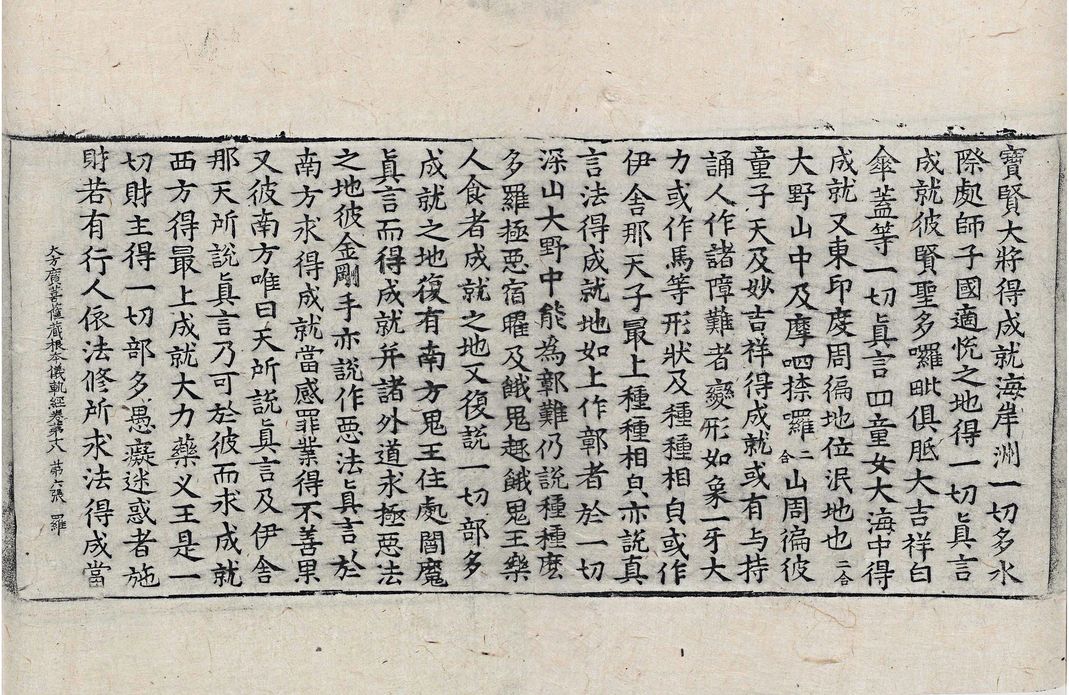 寶賢大將得成就海岸洲一切多水
際處師子國適恱之地得一切真言
成就彼賢聖多囉毗俱胝大吉祥白
傘蓋等一切真言四童女大海中得
成就又東印度周徧地位泯地也二合
大野山中及摩呬捺囉二合山周徧彼
童子天及妙吉祥得成就或有与持
誦人作諸障難者變形如象一牙大
力或作馬等形狀及種種相皃或作
伊舍那天子最上種種相皃亦說真
言法得成就地如上作鄣者於一切
深山大野中能為鄣難仍說種種麽
多羅極惡宿曜及餓鬼趣餓鬼王樂
人食者成就之地又復說一切部多
成就之地復有南方鬼王住處閻魔
真言而得成就并諸外道求極惡法
之地彼金剛手亦說作惡法真言於
南方求得成就當感罪業得不善果
又彼南方唯日天所說真言及伊舍
那天所說真言乃可於彼而求成就
西方得最上成就大力藥义王是一
切財主得一切部多愚癡迷惑者施
財若有行人依法修所求法得成當
大方廣菩薩藏根本儀軌經卷第十八 第六張 羅